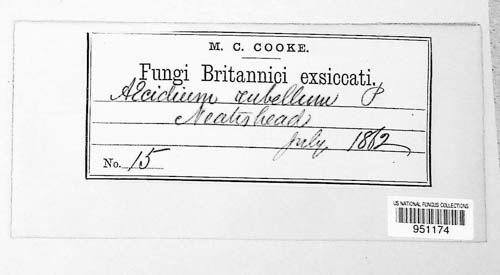 M. C. COOKE.
Fungi Britannici exsiccati.
Æcidium rubellum P
Neatishead
July 1862
No. 15
US NATIONAL FUNGUS COLLECTIONS
951174